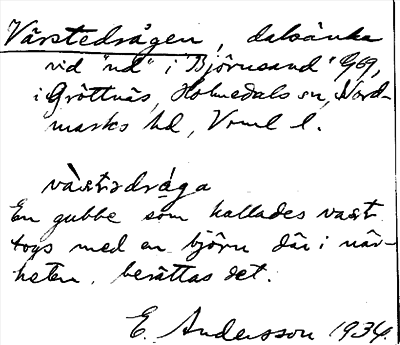 Värstedrågen, dalsänka
vid "nd" i "Björnsand" G09,
i Gröttnäs, Holmedals sn, Nord-
marks hd, Vrml l.
vàstədråga
En gubbe som kallades vast
togs med en björn där i när-
heten, berättas det.
E. Andersson 1934.